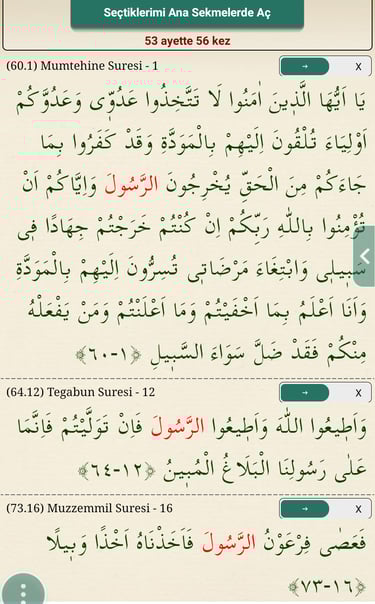 Seçtiklerimi Ana Sekmelerde Aç
53 ayette 56 kez
(60.1) Mumtehine Suresi - 1 → X
يَا اَيُّهَا الَّذ۪ينَ اٰمَنُوا لَا تَتَّخِذُوا عَدُوّ۪ي وَعَدُوَّكُمْ
اَوْلِيَاءَ تُلْقُونَ اِلَيْهِمْ بِالْمَوَدَّةِ وَقَدْ كَفَرُوا بِمَا
جَاءَكُمْ مِنَ الْحَقِّ يُخْرِجُونَ الرَّسُولَ وَاِيَّاكُمْ اَنْ
تُؤْمِنُوا بِاللّٰهِ رَبِّكُمْ اِنْ كُنْتُمْ خَرَجْتُمْ جِهَادًا ف۪ي
سَب۪يل۪ي وَابْتِغَاءَ مَرْضَات۪ي تُسِرُّونَ اِلَيْهِمْ بِالْمَوَدَّةِ
وَاَنَا اَعْلَمُ بِمَا اَخْفَيْتُمْ وَمَا اَعْلَنْتُمْ وَمَنْ يَفْعَلْهُ
مِنْكُمْ فَقَدْ ضَلَّ سَوَاءَ السَّب۪يلِ ﴿١-٦٠﴾
(64.12) Tegabun Suresi - 12 → X
وَاَط۪يعُوا اللّٰهَ وَاَط۪يعُوا الرَّسُولَ فَاِنْ تَوَلَّيْتُمْ فَاِنَّمَا
عَلٰى رَسُولِنَا الْبَلَاغُ الْمُب۪ينُ ﴿١٢-٦٤﴾
(73.16) Muzzemmil Suresi - 16 → X
فَعَصٰى فِرْعَوْنُ الرَّسُولَ فَاَخَذْنَاهُ اَخْذًا وَب۪يلًا
﴿١٦-٧٣﴾